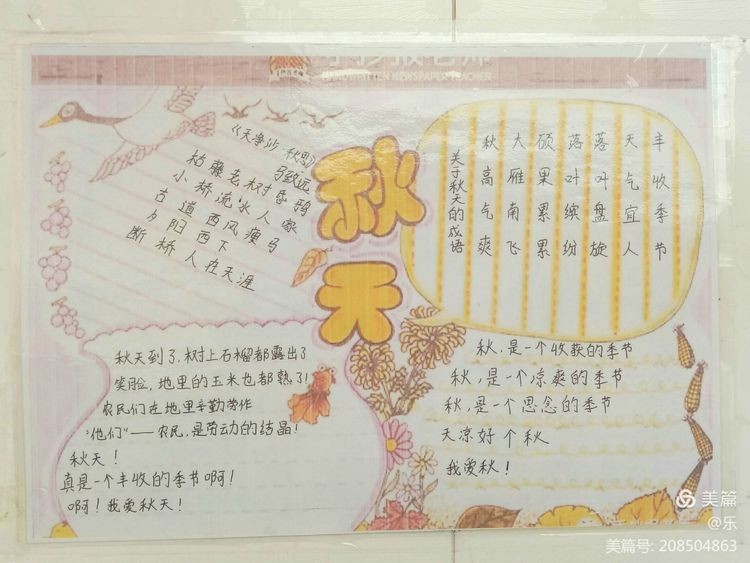 HANDWRITTEN NEWSPAPER TEACHER
《天净沙·秋思》
马致远
枯藤老树昏鸦
小桥流水人家
古道西风瘦马
夕阳西下
断桥人在天涯
秋天
关于秋天的成语
秋高气爽
大雁南飞
硕果累累
落叶缤纷
落叶盘旋
天气宜人
丰收季节
秋天到了,树上石榴都露出了
笑脸,地里的玉米也都熟了!
农民们在地里辛勤劳作
"他们"——农民,是劳动的结晶!
秋天!
真是一个丰收的季节啊!
啊!我爱秋天!
秋,是一个收获的季节
秋,是一个凉爽的季节
秋,是一个思念的季节
天凉好个秋
我爱秋!
美篇
@乐
美篇号: 208504863